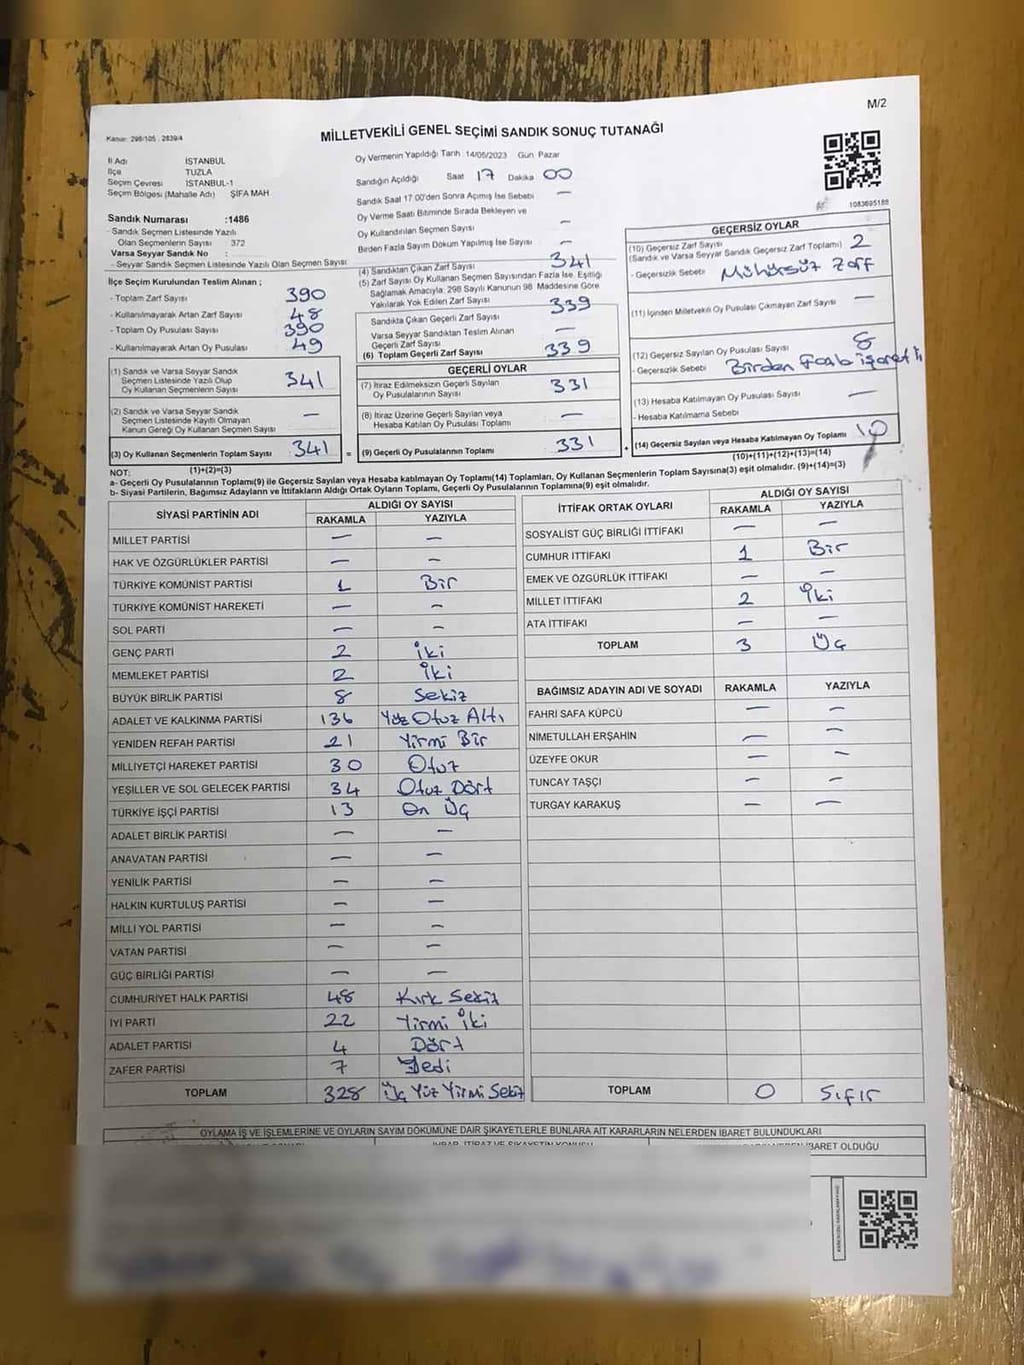 M/2
Kanun: 298/105 , 2839/4
MİLLETVEKİLİ GENEL SEÇİMİ SANDIK SONUÇ TUTANAĞI
İl Adı İSTANBUL
İlçe TUZLA
Seçim Çevresi İSTANBUL-1
Seçim Bölgesi (Mahalle Adı) ŞİFA MAH
Sandık Numarası :1486
- Sandık Seçmen Listesinde Yazılı
Olan Seçmenlerin Sayısı 372
Varsa Seyyar Sandık No :
- Seyyar Sandık Seçmen Listesinde Yazılı Olan Seçmen Sayısı
Oy Vermenin Yapıldığı Tarih :14/05/2023 Gün Pazar
Sandığın Açıldığı Saat 17 Dakika 00
Sandık Saat 17.00'den Sonra Açılmış İse Sebebi —
Oy Verme Saati Bitiminde Sırada Bekleyen ve
Oy Kullandırılan Seçmen Sayısı —
Birden Fazla Sayım Döküm Yapılmış İse Sayısı —
1083695188
İlçe Seçim Kurulundan Teslim Alınan ;
- Toplam Zarf Sayısı 390
- Kullanılmayarak Artan Zarf Sayısı 48
- Toplam Oy Pusulası Sayısı 390
- Kullanılmayarak Artan Oy Pusulası 49
(1) Sandık ve Varsa Seyyar Sandık
Seçmen Listesinde Yazılı Olup
Oy Kullanan Seçmenlerin Sayısı 341
(2) Sandık ve Varsa Seyyar Sandık
Seçmen Listesinde Kayıtlı Olmayan
Kanun Gereği Oy Kullanan Seçmen Sayısı —
(3) Oy Kullanan Seçmenlerin Toplam Sayısı 341
(1)+(2)=(3)
(4) Sandıktan Çıkan Zarf Sayısı 341
(5) Zarf Sayısı Oy Kullanan Seçmen Sayısından Fazla İse, Eşitliği
Sağlamak Amacıyla, 298 Sayılı Kanunun 98. Maddesine Göre
Yakılarak Yok Edilen Zarf Sayısı 339
Sandıkta Çıkan Geçerli Zarf Sayısı
Varsa Seyyar Sandıktan Teslim Alınan
Geçerli Zarf Sayısı —
(6) Toplam Geçerli Zarf Sayısı 339
GEÇERLİ OYLAR
(7) İtiraz Edilmeksizin Geçerli Sayılan
Oy Pusulalarının Sayısı 331
(8) İtiraz Üzerine Geçerli Sayılan veya
Hesaba Katılan Oy Pusulası Toplamı —
(9) Geçerli Oy Pusulalarının Toplamı 331
GEÇERSİZ OYLAR
(10) Geçersiz Zarf Sayısı
(Sandık ve Varsa Seyyar Sandık Geçersiz Zarf Toplamı) 2
- Geçersizlik Sebebi Mühürsüz Zarf
(11) İçinden Milletvekili Oy Pusulası Çıkmayan Zarf Sayısı —
(12) Geçersiz Sayılan Oy Pusulası Sayısı 8
- Geçersizlik Sebebi Birden Fazla işaretli
(13) Hesaba Katılmayan Oy Pusulası Sayısı —
- Hesaba Katılmama Sebebi
(14) Geçersiz Sayılan veya Hesaba Katılmayan Oy Toplamı 10
(10)+(11)+(12)+(13)=(14)
NOT:
a- Geçerli Oy Pusulalarının Toplamı(9) ile Geçersiz Sayılan veya Hesaba katılmayan Oy Toplamı(14) Toplamları, Oy Kullanan Seçmenlerin Toplam Sayısına(3) eşit olmalıdır. (9)+(14)=(3)
b- Siyasi Partilerin, Bağımsız Adayların ve İttifakların Aldığı Ortak Oyların Toplamı, Geçerli Oy Pusulalarının Toplamına(9) eşit olmalıdır.
SİYASİ PARTİNİN ADI ALDIĞI OY SAYISI
RAKAMLA YAZIYLA
MİLLET PARTİSİ — —
HAK VE ÖZGÜRLÜKLER PARTİSİ — —
TÜRKİYE KOMÜNİST PARTİSİ 1 Bir
TÜRKİYE KOMÜNİST HAREKETİ — —
SOL PARTİ — —
GENÇ PARTİ 2 iki
MEMLEKET PARTİSİ 2 İki
BÜYÜK BİRLİK PARTİSİ 8 Sekiz
ADALET VE KALKINMA PARTİSİ 136 Yüz Otuz Altı
YENİDEN REFAH PARTİSİ 21 Yirmi Bir
MİLLİYETÇİ HAREKET PARTİSİ 30 Otuz
YEŞİLLER VE SOL GELECEK PARTİSİ 34 Otuz Dört
TÜRKİYE İŞÇİ PARTİSİ 13 On Üç
ADALET BİRLİK PARTİSİ — —
ANAVATAN PARTİSİ — —
YENİLİK PARTİSİ — —
HALKIN KURTULUŞ PARTİSİ — —
MİLLİ YOL PARTİSİ — —
VATAN PARTİSİ — —
GÜÇ BİRLİĞİ PARTİSİ — —
CUMHURİYET HALK PARTİSİ 48 Kırk Sekiz
İYİ PARTİ 22 Yirmi iki
ADALET PARTİSİ 4 Dört
ZAFER PARTİSİ 7 Yedi
TOPLAM 328 Üç Yüz Yirmi Sekiz
İTTİFAK ORTAK OYLARI ALDIĞI OY SAYISI
RAKAMLA YAZIYLA
SOSYALİST GÜÇ BİRLİĞİ İTTİFAKI — —
CUMHUR İTTİFAKI 1 Bir
EMEK VE ÖZGÜRLÜK İTTİFAKI — —
MİLLET İTTİFAKI 2 İki
ATA İTTİFAKI — —
TOPLAM 3 Üç
BAĞIMSIZ ADAYIN ADI VE SOYADI RAKAMLA YAZIYLA
FAHRİ SAFA KÜPCÜ — —
NİMETULLAH ERŞAHİN — —
ÜZEYFE OKUR — —
TUNCAY TAŞÇI — —
TURGAY KARAKUŞ — —
TOPLAM 0 Sıfır
OYLAMA İŞ VE İŞLEMLERİNE VE OYLARIN SAYIM DÖKÜMÜNE DAİR ŞİKAYETLERLE BUNLARA AİT KARARLARIN NELERDEN İBARET BULUNDUKLARI
İHBAR, İTİRAZ VE ŞİKAYETİN KONUSU
İBARET OLDUĞU